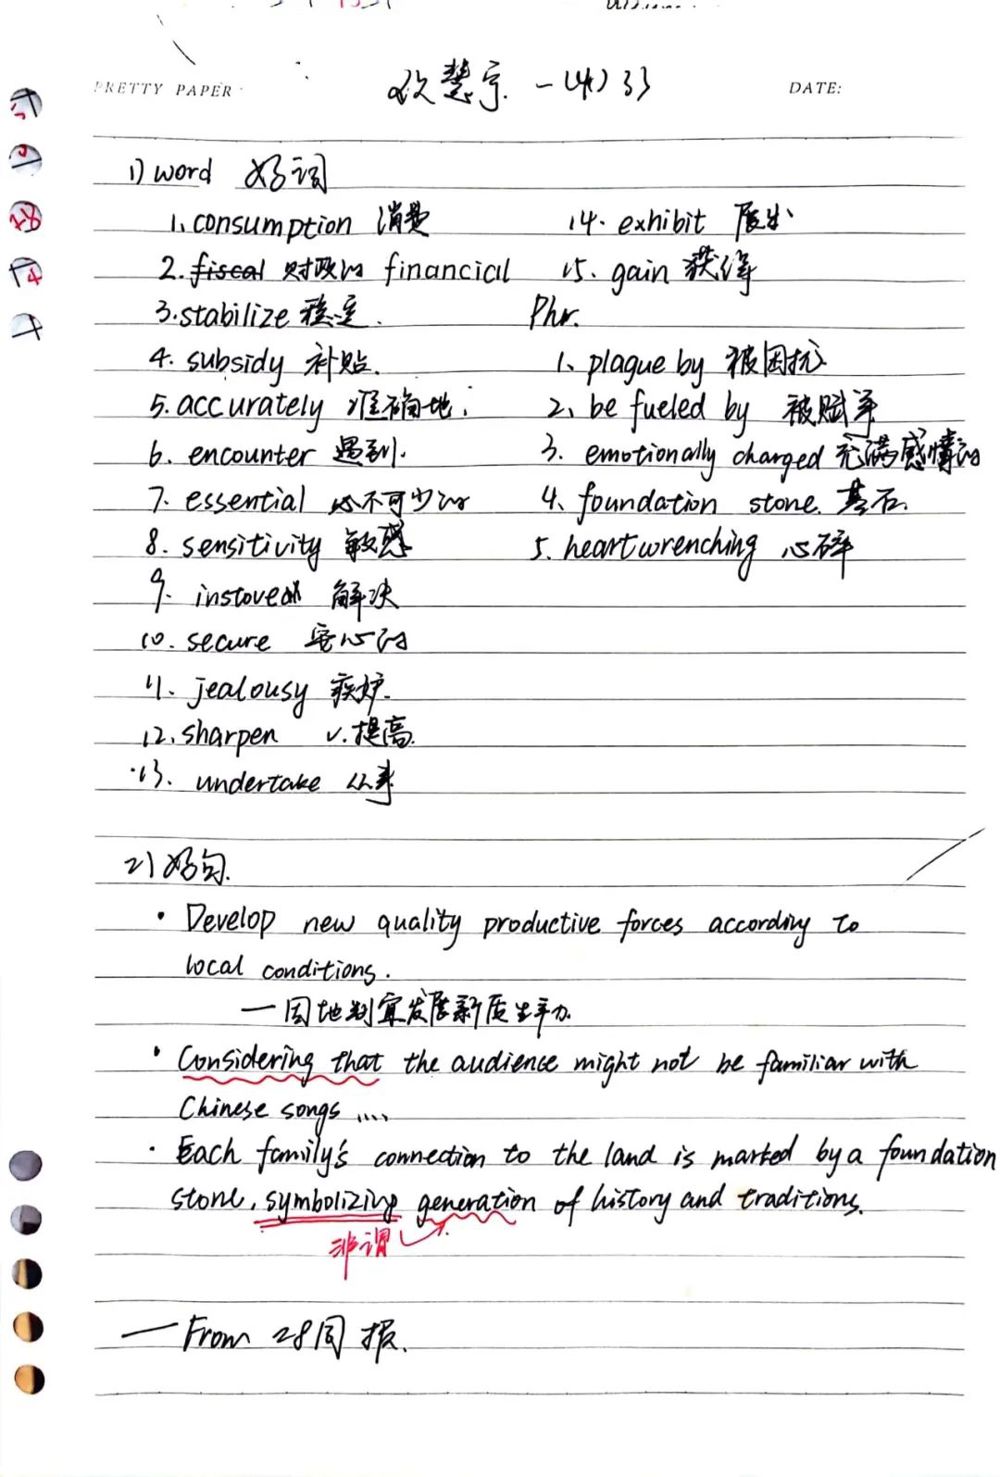 PRETTY PAPER
慧宇 - (4) 33
DATE:
1) word 好词
1. consumption 消费
2. fiscal 财政的 financial
3. stabilize 稳定.
4. subsidy 补贴.
5. accurately 准确地.
6. encounter 遇到.
7. essential 必不可少的
8. sensitivity 敏感
9. 解决
10. secure 安心的
11. jealousy 疾妒.
12. sharpen v. 提高.
13. undertake 从事
14. exhibit 展出
15. gain 获得
Phr.
1. plague by 被困扰
2. be fueled by 被赋予
3. emotionally charged 充满感情的
4. foundation stone. 基石.
5. heartwrenching 心碎
2) 好句.
· Develop new quality productive forces according to
local conditions.
— 因地制宜发展新质生产力.
· Considering that the audience might not be familiar with
Chinese songs ....
· Each family's connection to the land is marked by a foundation
stone, symbolizing generation of history and traditions.
非谓
— From 28周报.